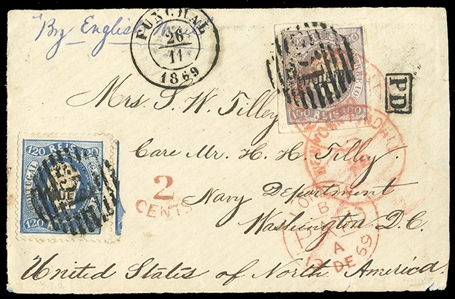 By English Mail
FUNCHAL
26
11
1869
PD
Mrs. S. W. Tilley
Care Mr. H. H. Tilley.
Navy Department
Washington D.C.
United States of North America.
2
CENTS
120 REIS 120
PORTUGAL
120 120
100 REIS 100
A
DE
69